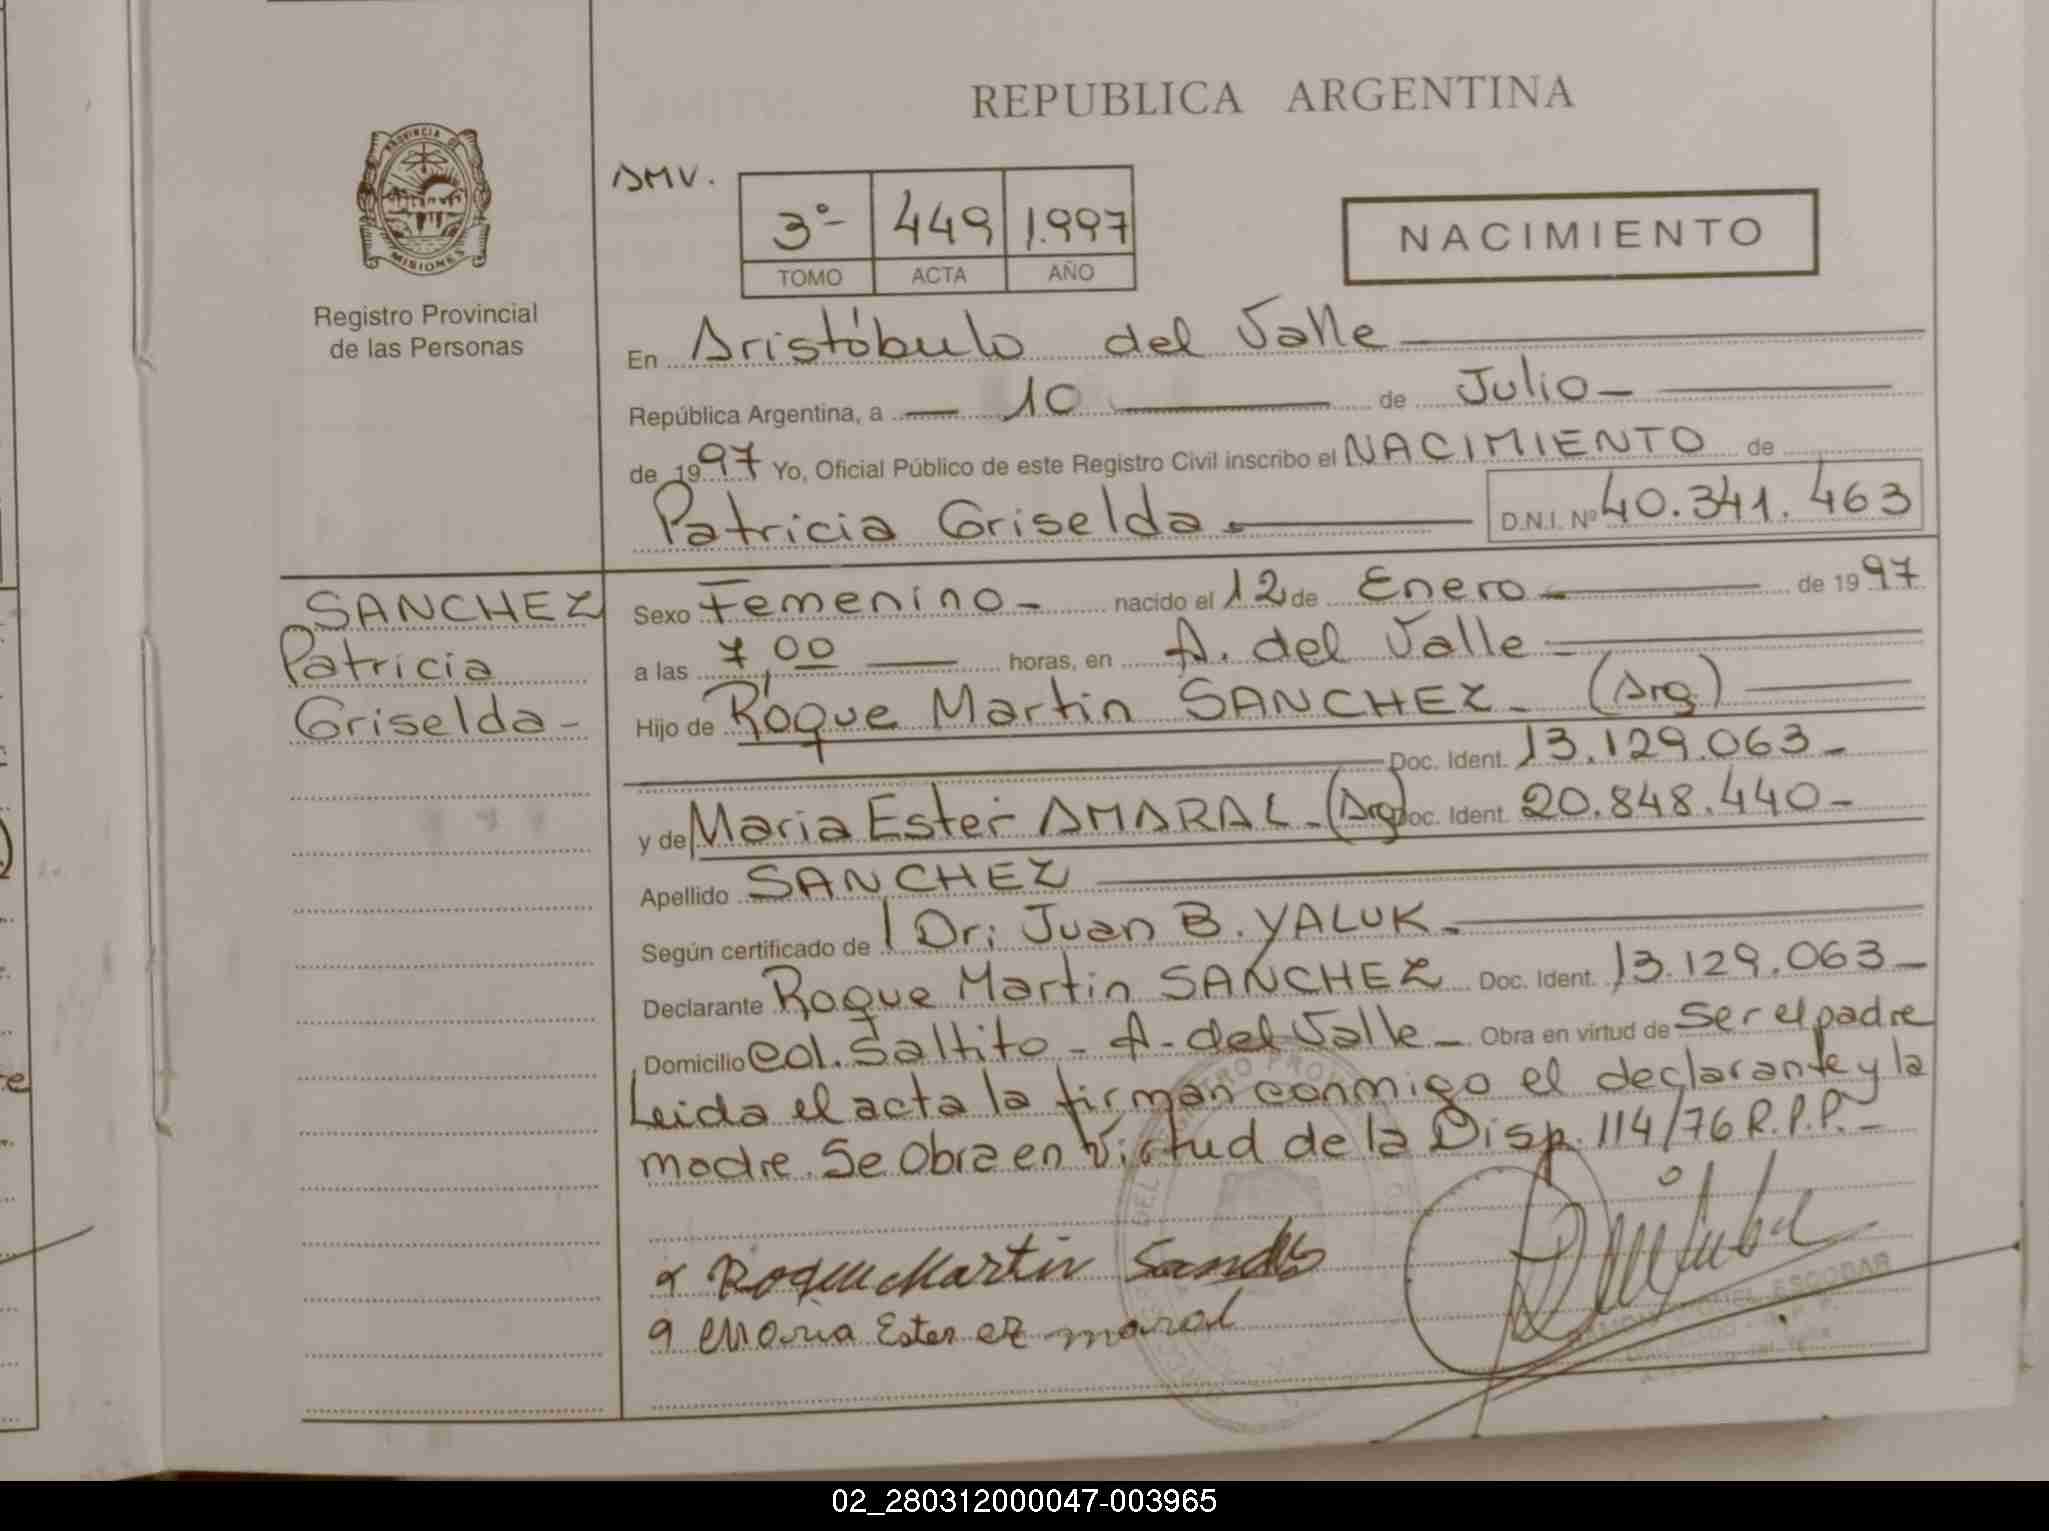 REPUBLICA ARGENTINA
PROVINCIA DE
MISIONES
Registro Provincial
de las Personas
AMV.
3º- 449 1.997
TOMO ACTA AÑO
NACIMIENTO
En Aristóbulo del Valle
República Argentina, a 10 de Julio
de 1997 Yo, Oficial Público de este Registro Civil inscribo el NACIMIENTO de
Patricia Griselda. D.N.I. Nº 40.341.463
SANCHEZ
Patricia
Griselda-
Sexo Femenino nacido el 12 de Enero de 1997
a las 7,00 horas, en A. del Valle
Hijo de Roque Martin SANCHEZ (Arg)
Doc. Ident. 13.129.063-
y de Maria Ester AMARAL-(Arg) Doc. Ident. 20.848.440-
Apellido SANCHEZ
Según certificado de Dr: Juan B. YALUK.
Declarante Roque Martin SANCHEZ Doc. Ident. 13.129.063-
Domicilio Col. Saltito - A. del Valle - Obra en virtud de Ser el padre
Leida el acta la firman conmigo el declarante y la
madre. Se Obra en Virtud de la Disp. 114/76 R.P.P.-
Roque Martin Sanches
Maria Ester maral
ESCOBAR
02_280312000047-003965